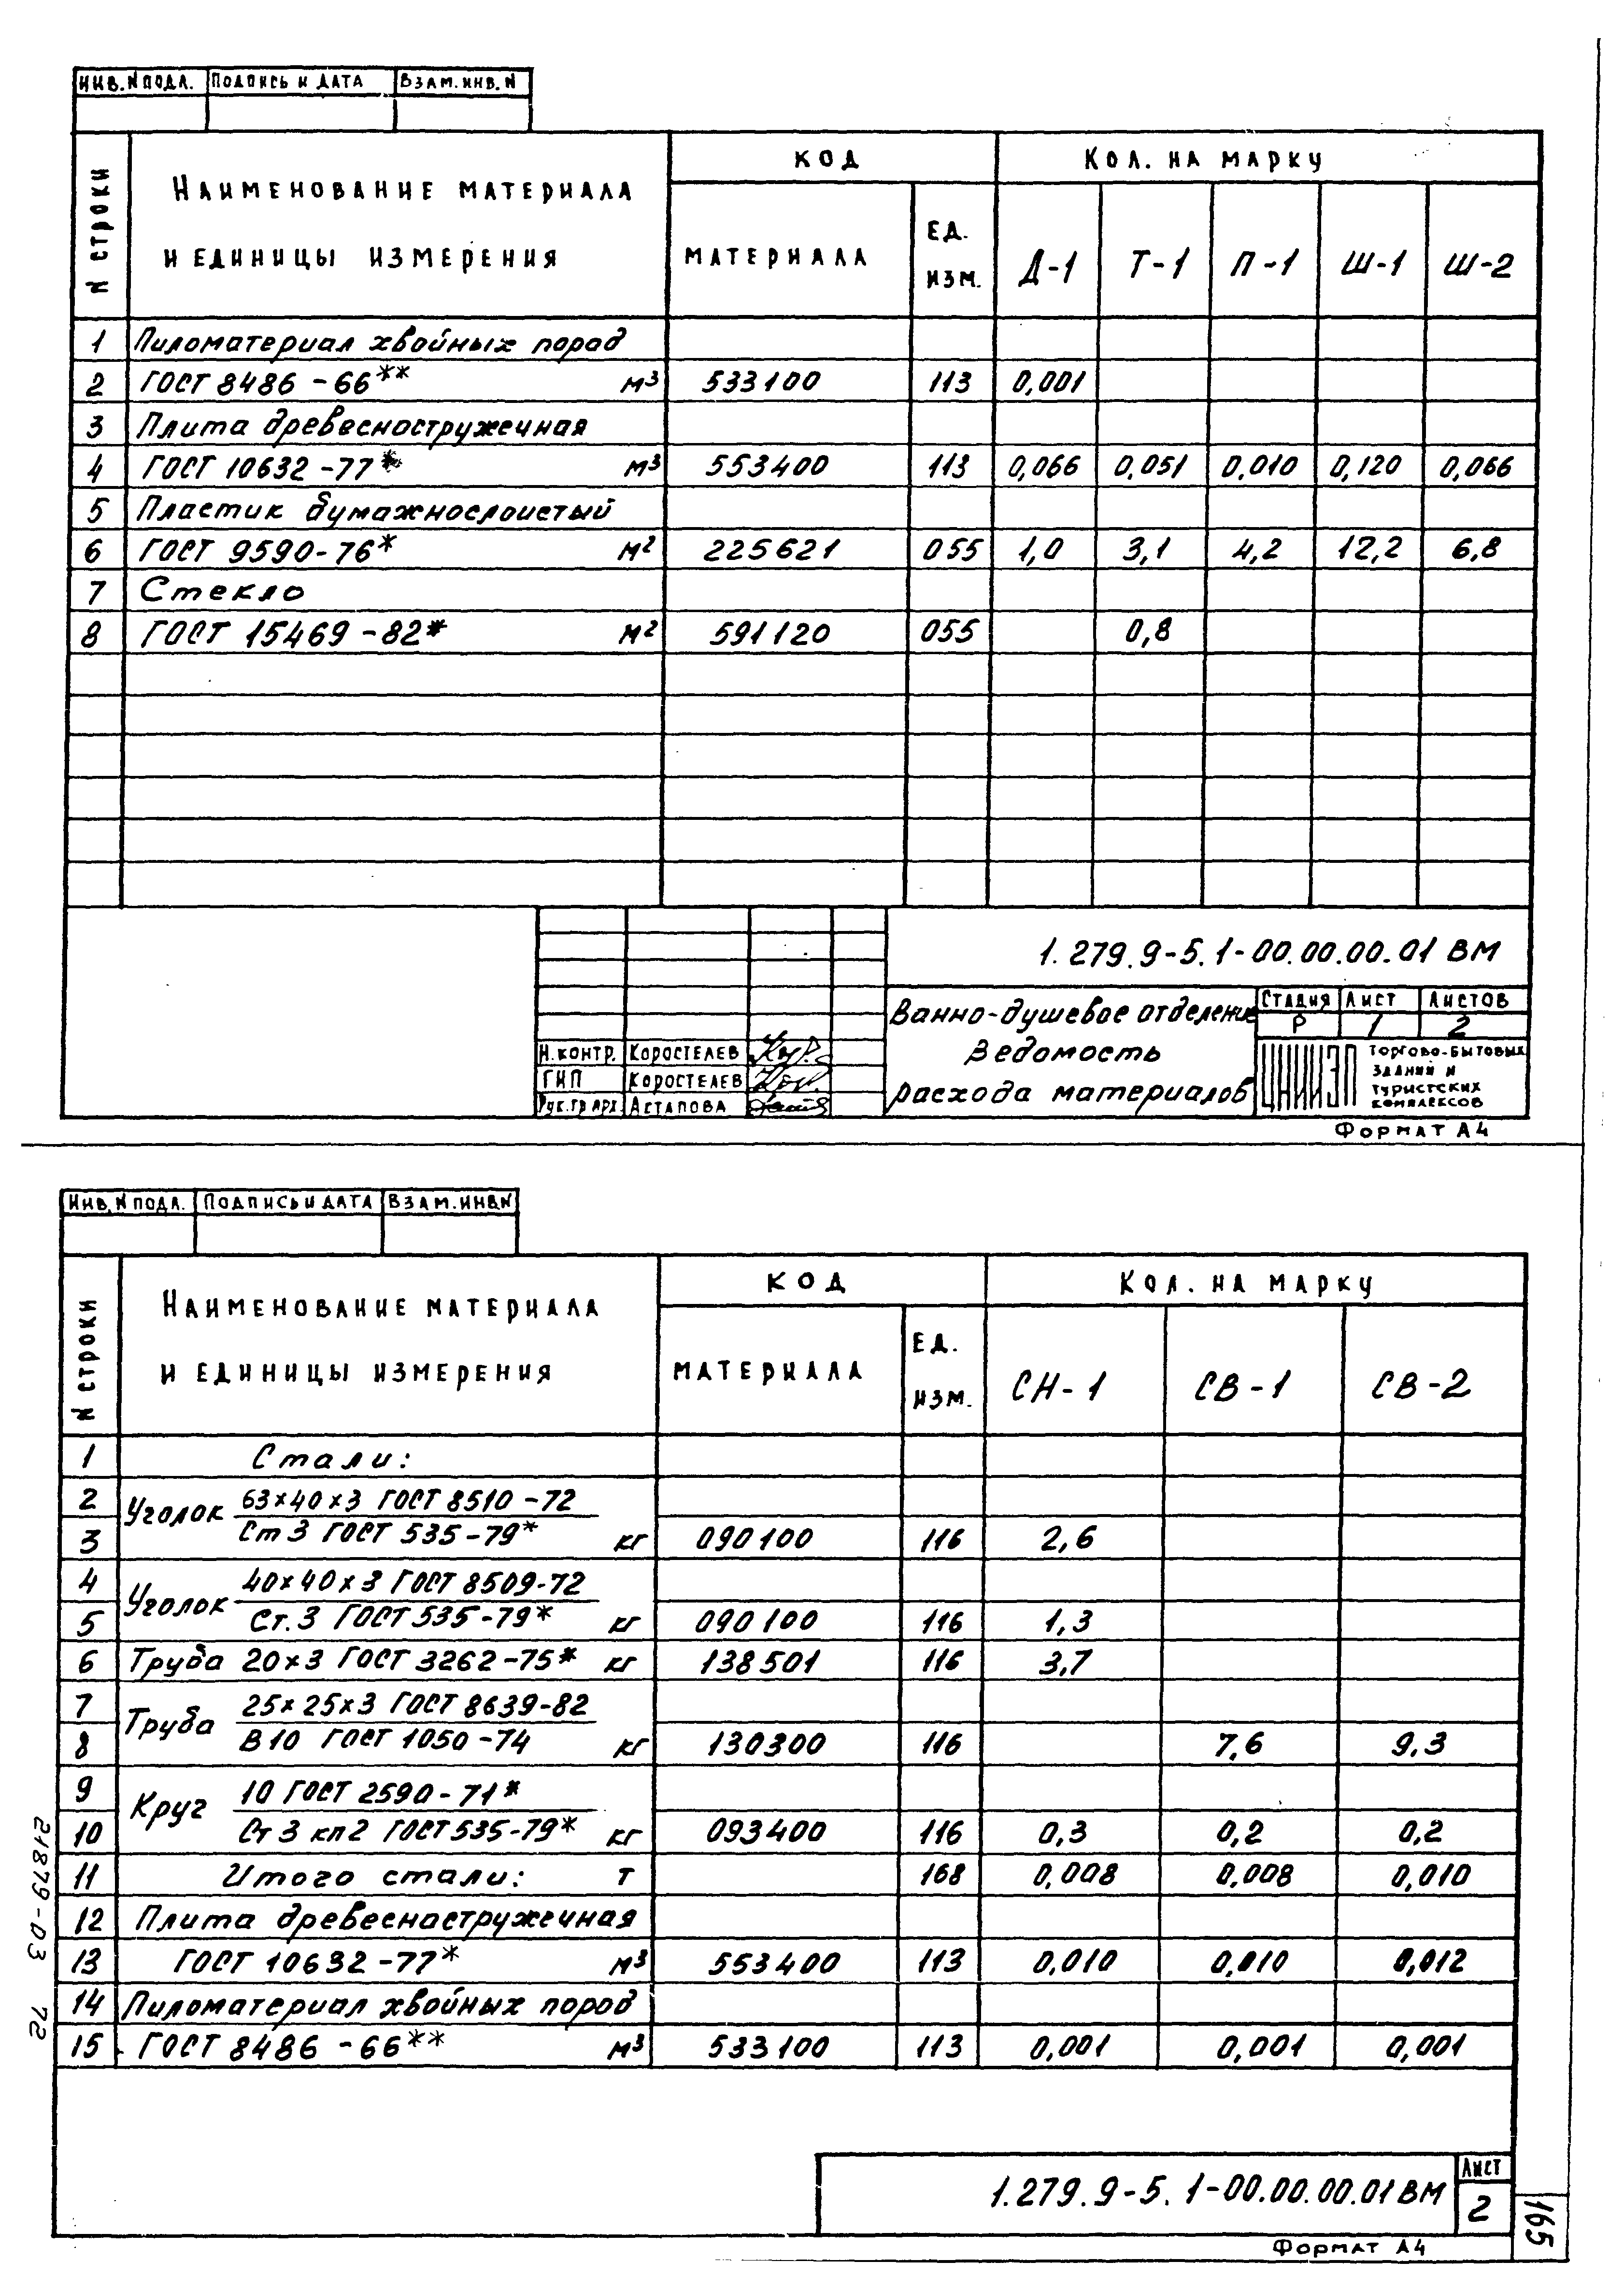 Инв. N подл. Подпись и дата Взам. инв. N
N строки Наименование материала и единицы измерения Код Кол. на марку
материала Ед. изм. Д-1 Т-1 П-1 Ш-1 Ш-2
1 Пиломатериал хвойных пород
2 ГОСТ 8486-66** м³ 533100 113 0,001
3 Плита древесностружечная
4 ГОСТ 10632-77* м³ 553400 113 0,066 0,051 0,010 0,120 0,066
5 Пластик бумажнослоистый
6 ГОСТ 9590-76* м² 225621 055 1,0 3,1 4,2 12,2 6,8
7 Стекло
8 ГОСТ 15469-82* м² 591120 055 0,8
1.279.9-5.1-00.00.00.01 ВМ
Ванно-душевое отделение
Ведомость
расхода материалов
Стадия Лист Листов
Р 1 2
Н. контр. Коростелев
ГИП Коростелев
Рук. гр арх. Астапова
ЦНИИЭП торгово-бытовых
зданий и
туристских
комплексов
Формат А4
Инв. N подл. Подпись и дата Взам. инв. N
N строки Наименование материала и единицы измерения Код Кол. на марку
материала Ед. изм. СН-1 СВ-1 СВ-2
1 Стали:
2 Уголок 63×40×3 ГОСТ 8510-72
3 Ст 3 ГОСТ 535-79* кг 090100 116 2,6
4 Уголок 40×40×3 ГОСТ 8509-72
5 Ст. 3 ГОСТ 535-79* кг 090100 116 1,3
6 Труба 20×3 ГОСТ 3262-75* кг 138501 116 3,7
7 Труба 25×25×3 ГОСТ 8639-82
8 В10 ГОСТ 1050-74 кг 130300 116 7,6 9,3
9 Круг 10 ГОСТ 2590-71*
10 Ст 3 кп2 ГОСТ 535-79* кг 093400 116 0,3 0,2 0,2
11 Итого стали: т 168 0,008 0,008 0,010
12 Плита древесностружечная
13 ГОСТ 10632-77* м³ 553400 113 0,010 0,010 0,012
14 Пиломатериал хвойных пород
15 ГОСТ 8486-66** м³ 533100 113 0,001 0,001 0,001
21879-03 72
1.279.9-5.1-00.00.00.01 ВМ
Лист
2
165
Формат А4